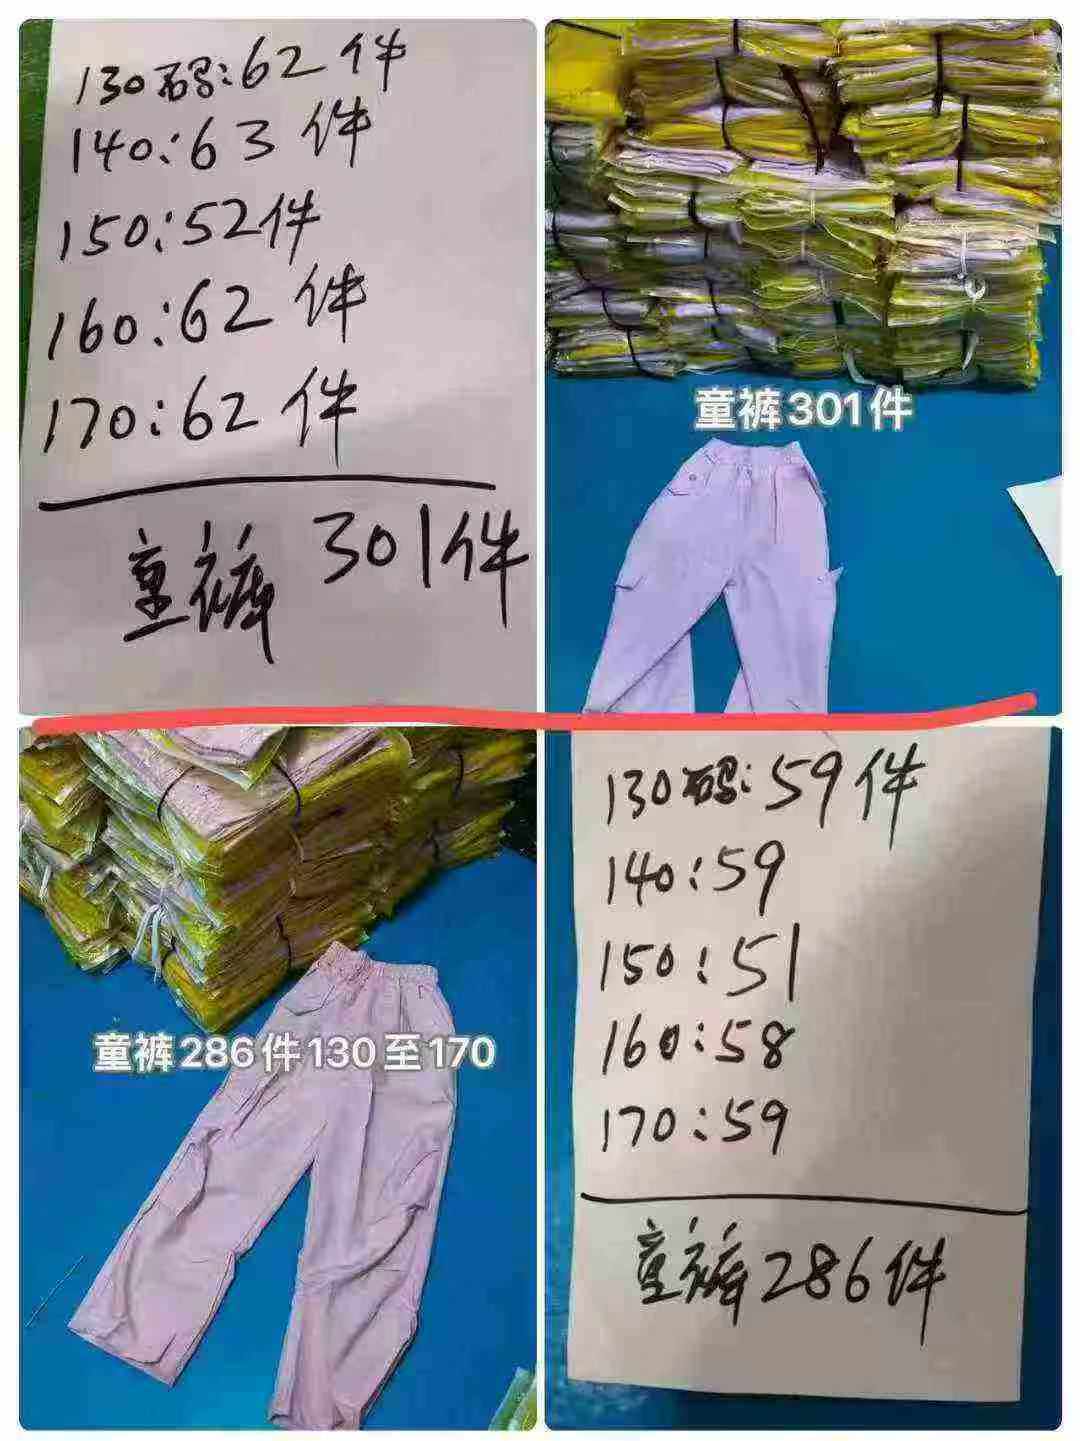 130码:62件
140:63件
150:52件
160:62件
170:62件
童裤 301件
童裤301件
童裤286件130至170
130码:59件
140:59
150:51
160:58
170:59
童裤286件